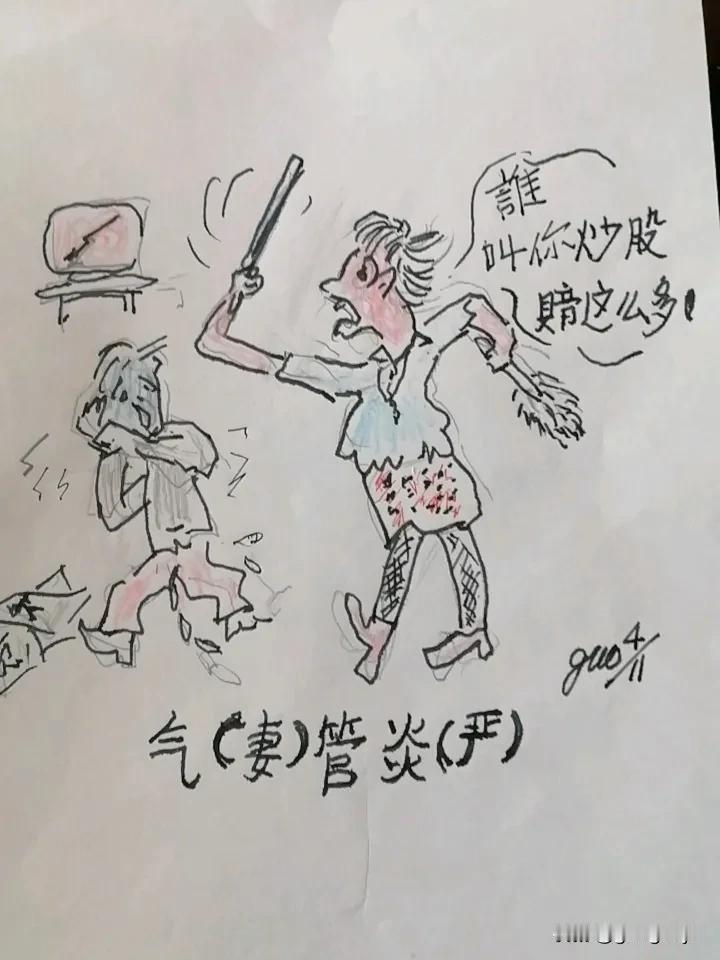 誰
叫你炒股
賠这么多!
guo 4/11
气(妻)管炎(严)